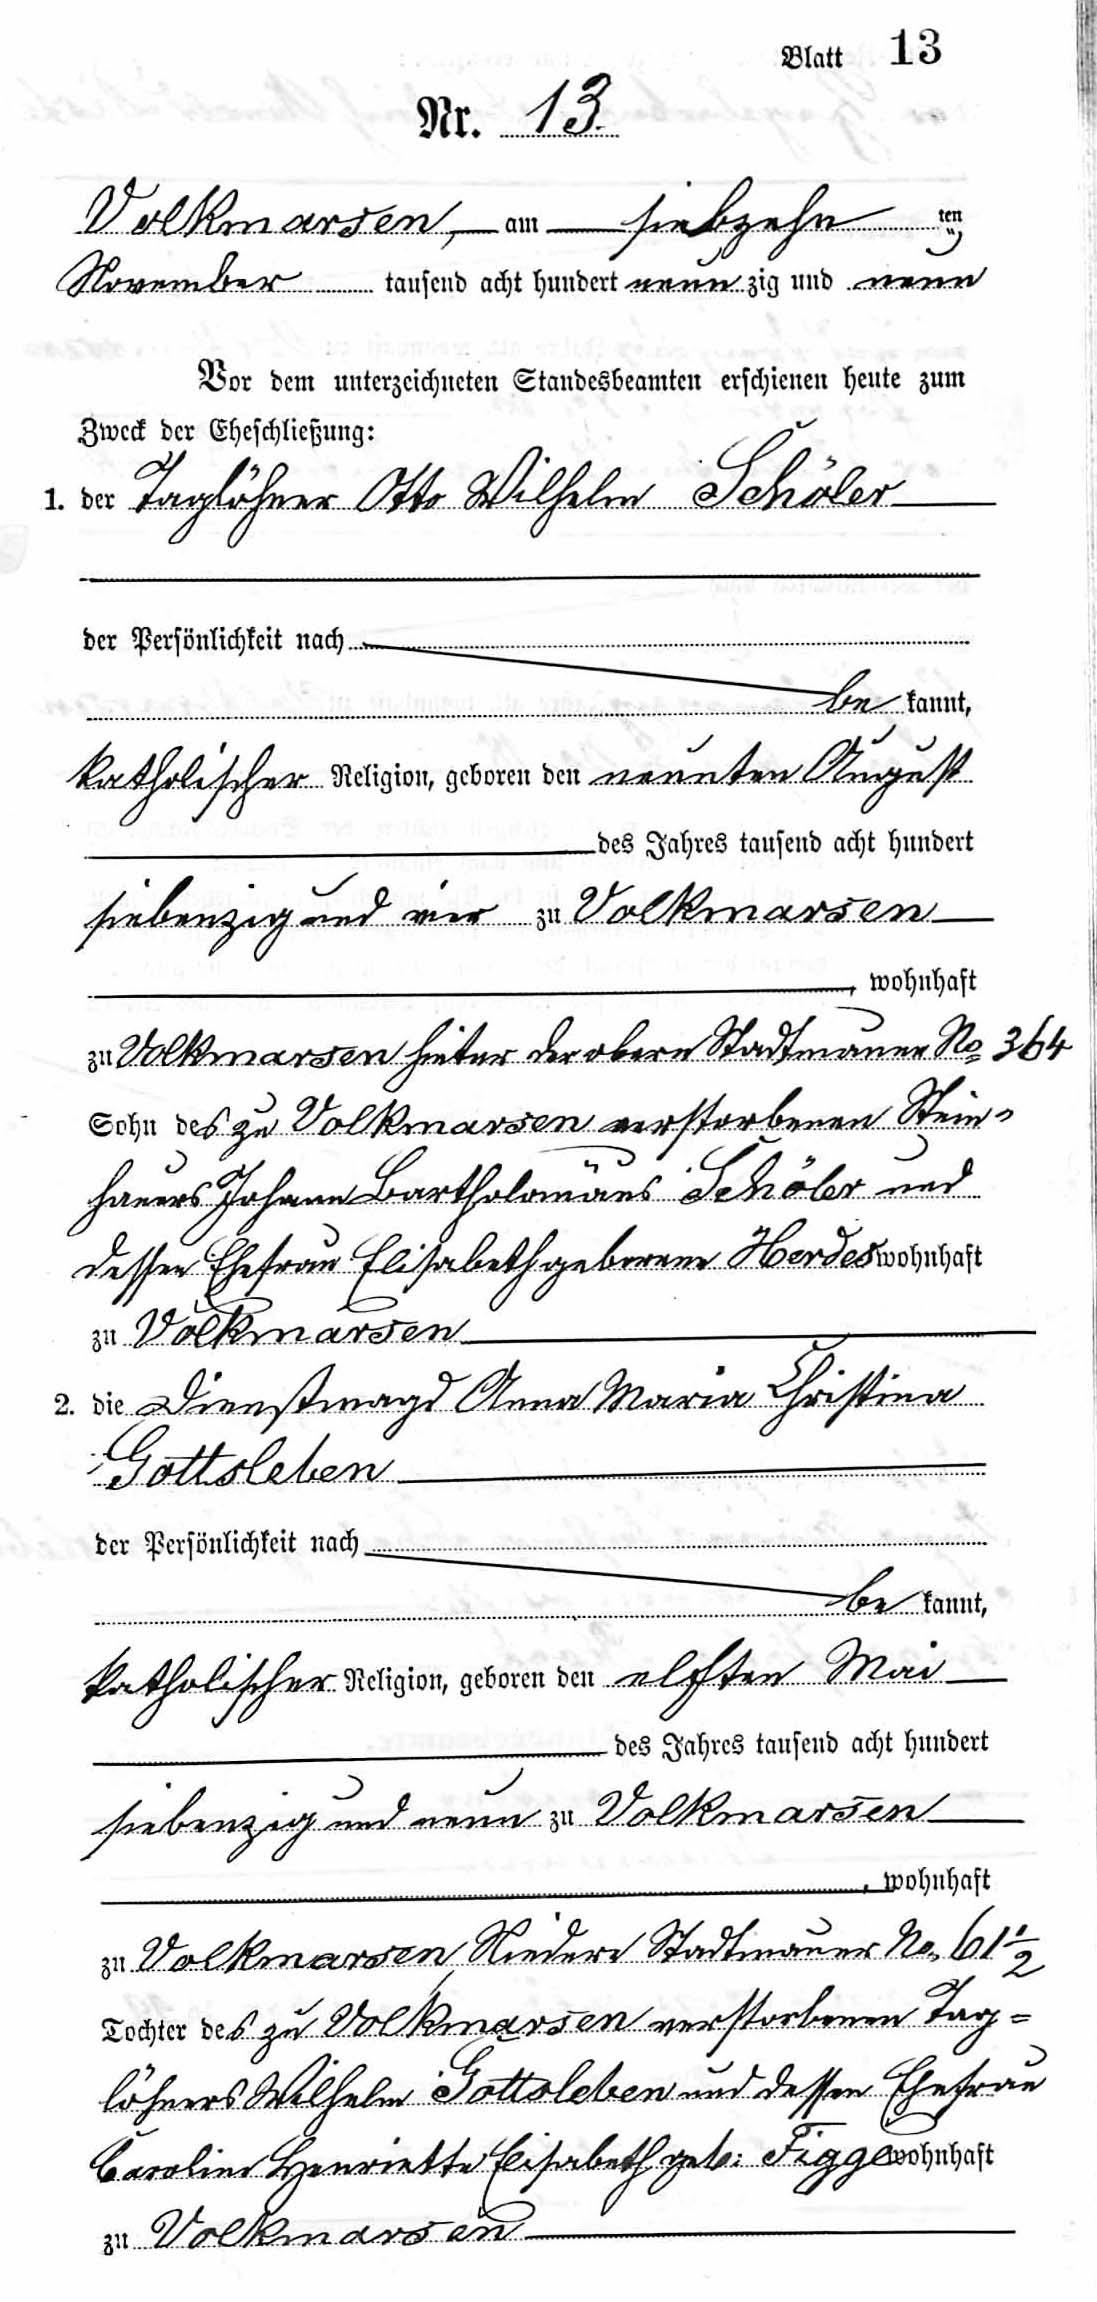 Blatt 13
Nr. 13.
Volkmarsen, am siebzehn ten
November tausend acht hundert neun zig und neun
Vor dem unterzeichneten Standesbeamten erschienen heute zum
Zweck der Eheschließung:
1. der Taglöhner Otto Wilhelm Schöler
der Persönlichkeit nach
be kannt,
katholischer Religion, geboren den neunten August
des Jahres tausend acht hundert
siebenzig und vier zu Volkmarsen
, wohnhaft
zu Volkmarsen hinter der obern Stadtmauer No 364
Sohn des zu Volkmarsen verstorbenen Stein-
hauers Johann Bartholomäus Schöler und
dessen Ehefrau Elisabeth geborene Herdes wohnhaft
zu Volkmarsen
2. die Dienstmagd Anna Maria Christina
Gottsleben
der Persönlichkeit nach
be kannt,
katholischer Religion, geboren den elften Mai
des Jahres tausend acht hundert
siebenzig und neun zu Volkmarsen
, wohnhaft
zu Volkmarsen, Niedere Stadtmauer No. 61 1/2
Tochter des zu Volkmarsen verstorbenen Tag=
löhners Wilhelm Gottsleben und dessen Ehefrau
Caroline Henriette Elisabeth geb: Figge wohnhaft
zu Volkmarsen